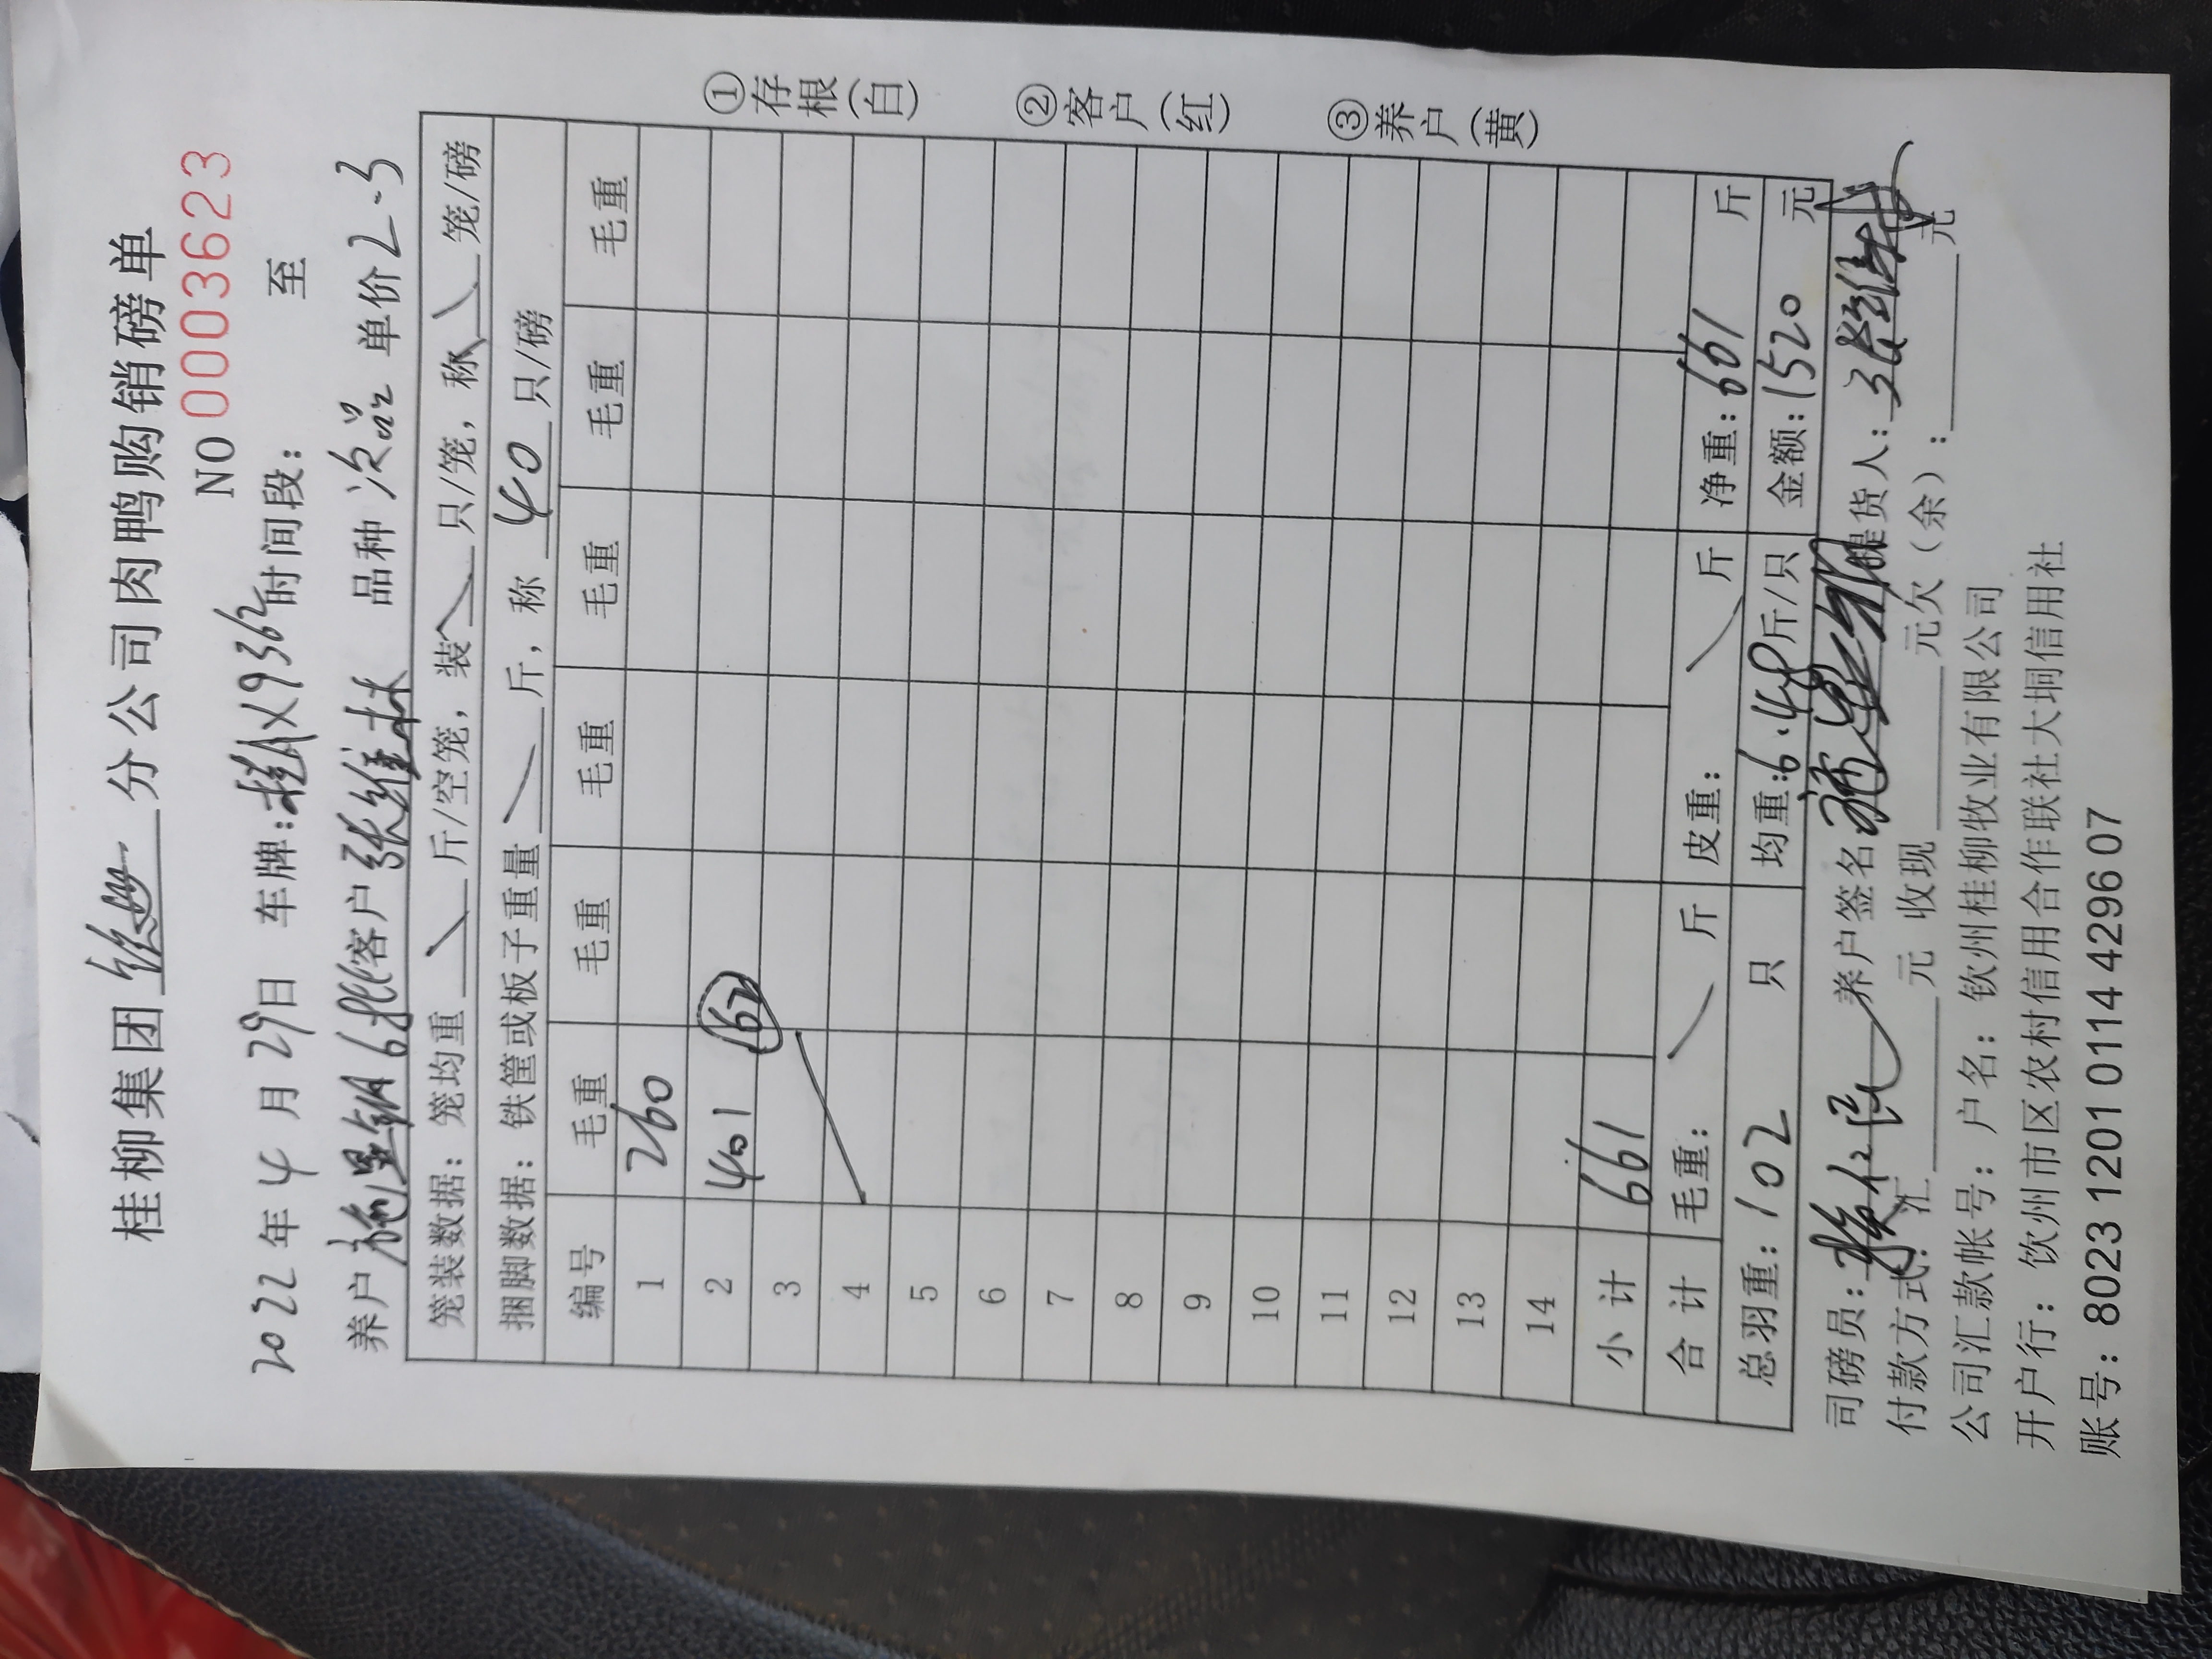 桂柳集团 分公司肉鸭购销磅单
NO 0003623
2022年4月29日 车牌:桂AX9362 时间段: 至
养户 施里 6批 客户 张维林 品种 次品 单价 2.3
笼装数据:笼均重 斤/空笼,装 只/笼,称 笼/磅
捆脚数据:铁筐或板子重量 斤,称 40 只/磅
编号 毛重 毛重 毛重 毛重 毛重 毛重
1 260
2 401 62
3
4
5
6
7
8
9
10
11
12
13
14
小计 661
合计 毛重: 斤 皮重: 斤 净重:661 斤
总羽重:102 只 均重:6.48斤/只 金额:1520 元
①存根(白)
②客户(红)
③养户(黄)
司磅员: 养户签名 提货人:张维林
付款方式:汇 元 收现 元欠(余): 元
公司汇款帐号:户名:钦州桂柳牧业有限公司
开户行:钦州市区农村信用合作联社大垌信用社
账号:8023 1201 0114 4296 07